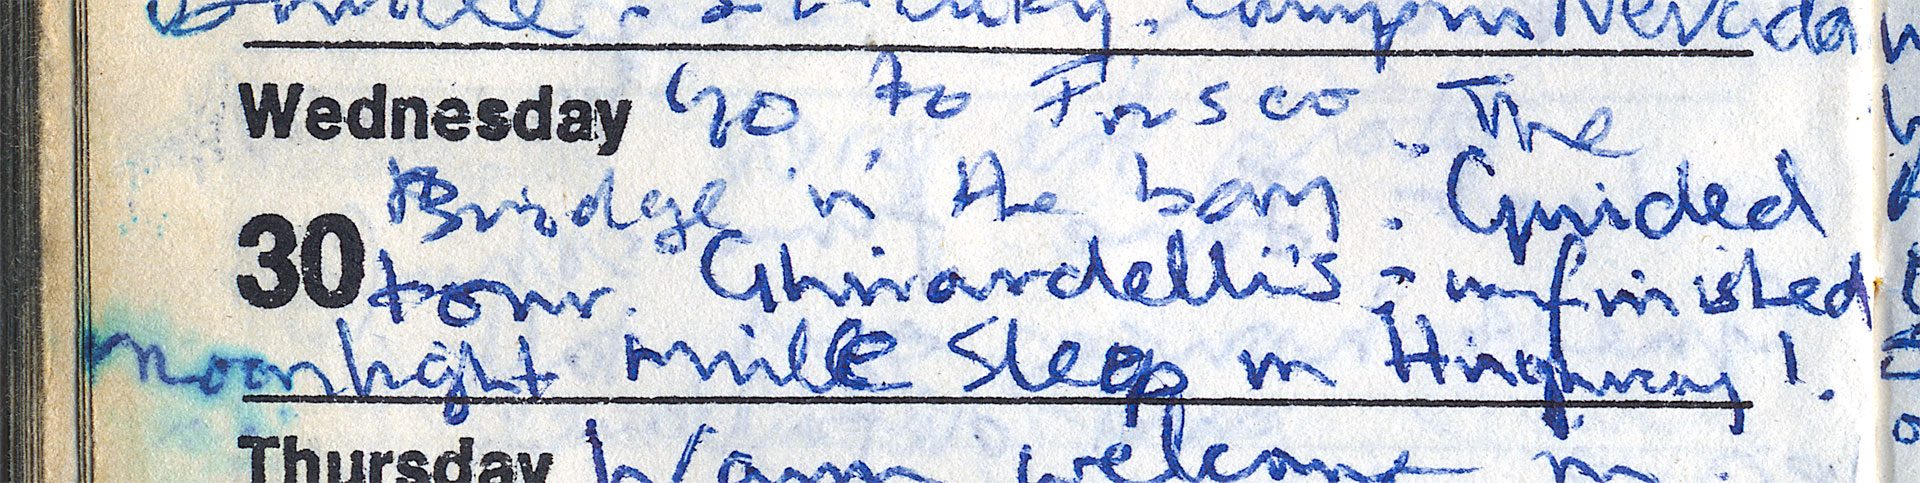 in Nevada
Wednesday Go to Frisco. The
Bridge in the bay. Guided
30 tour. Ghirardelli's; unfinished
moonlight mile Sleep in Highway!
Thursday Warm welcome in